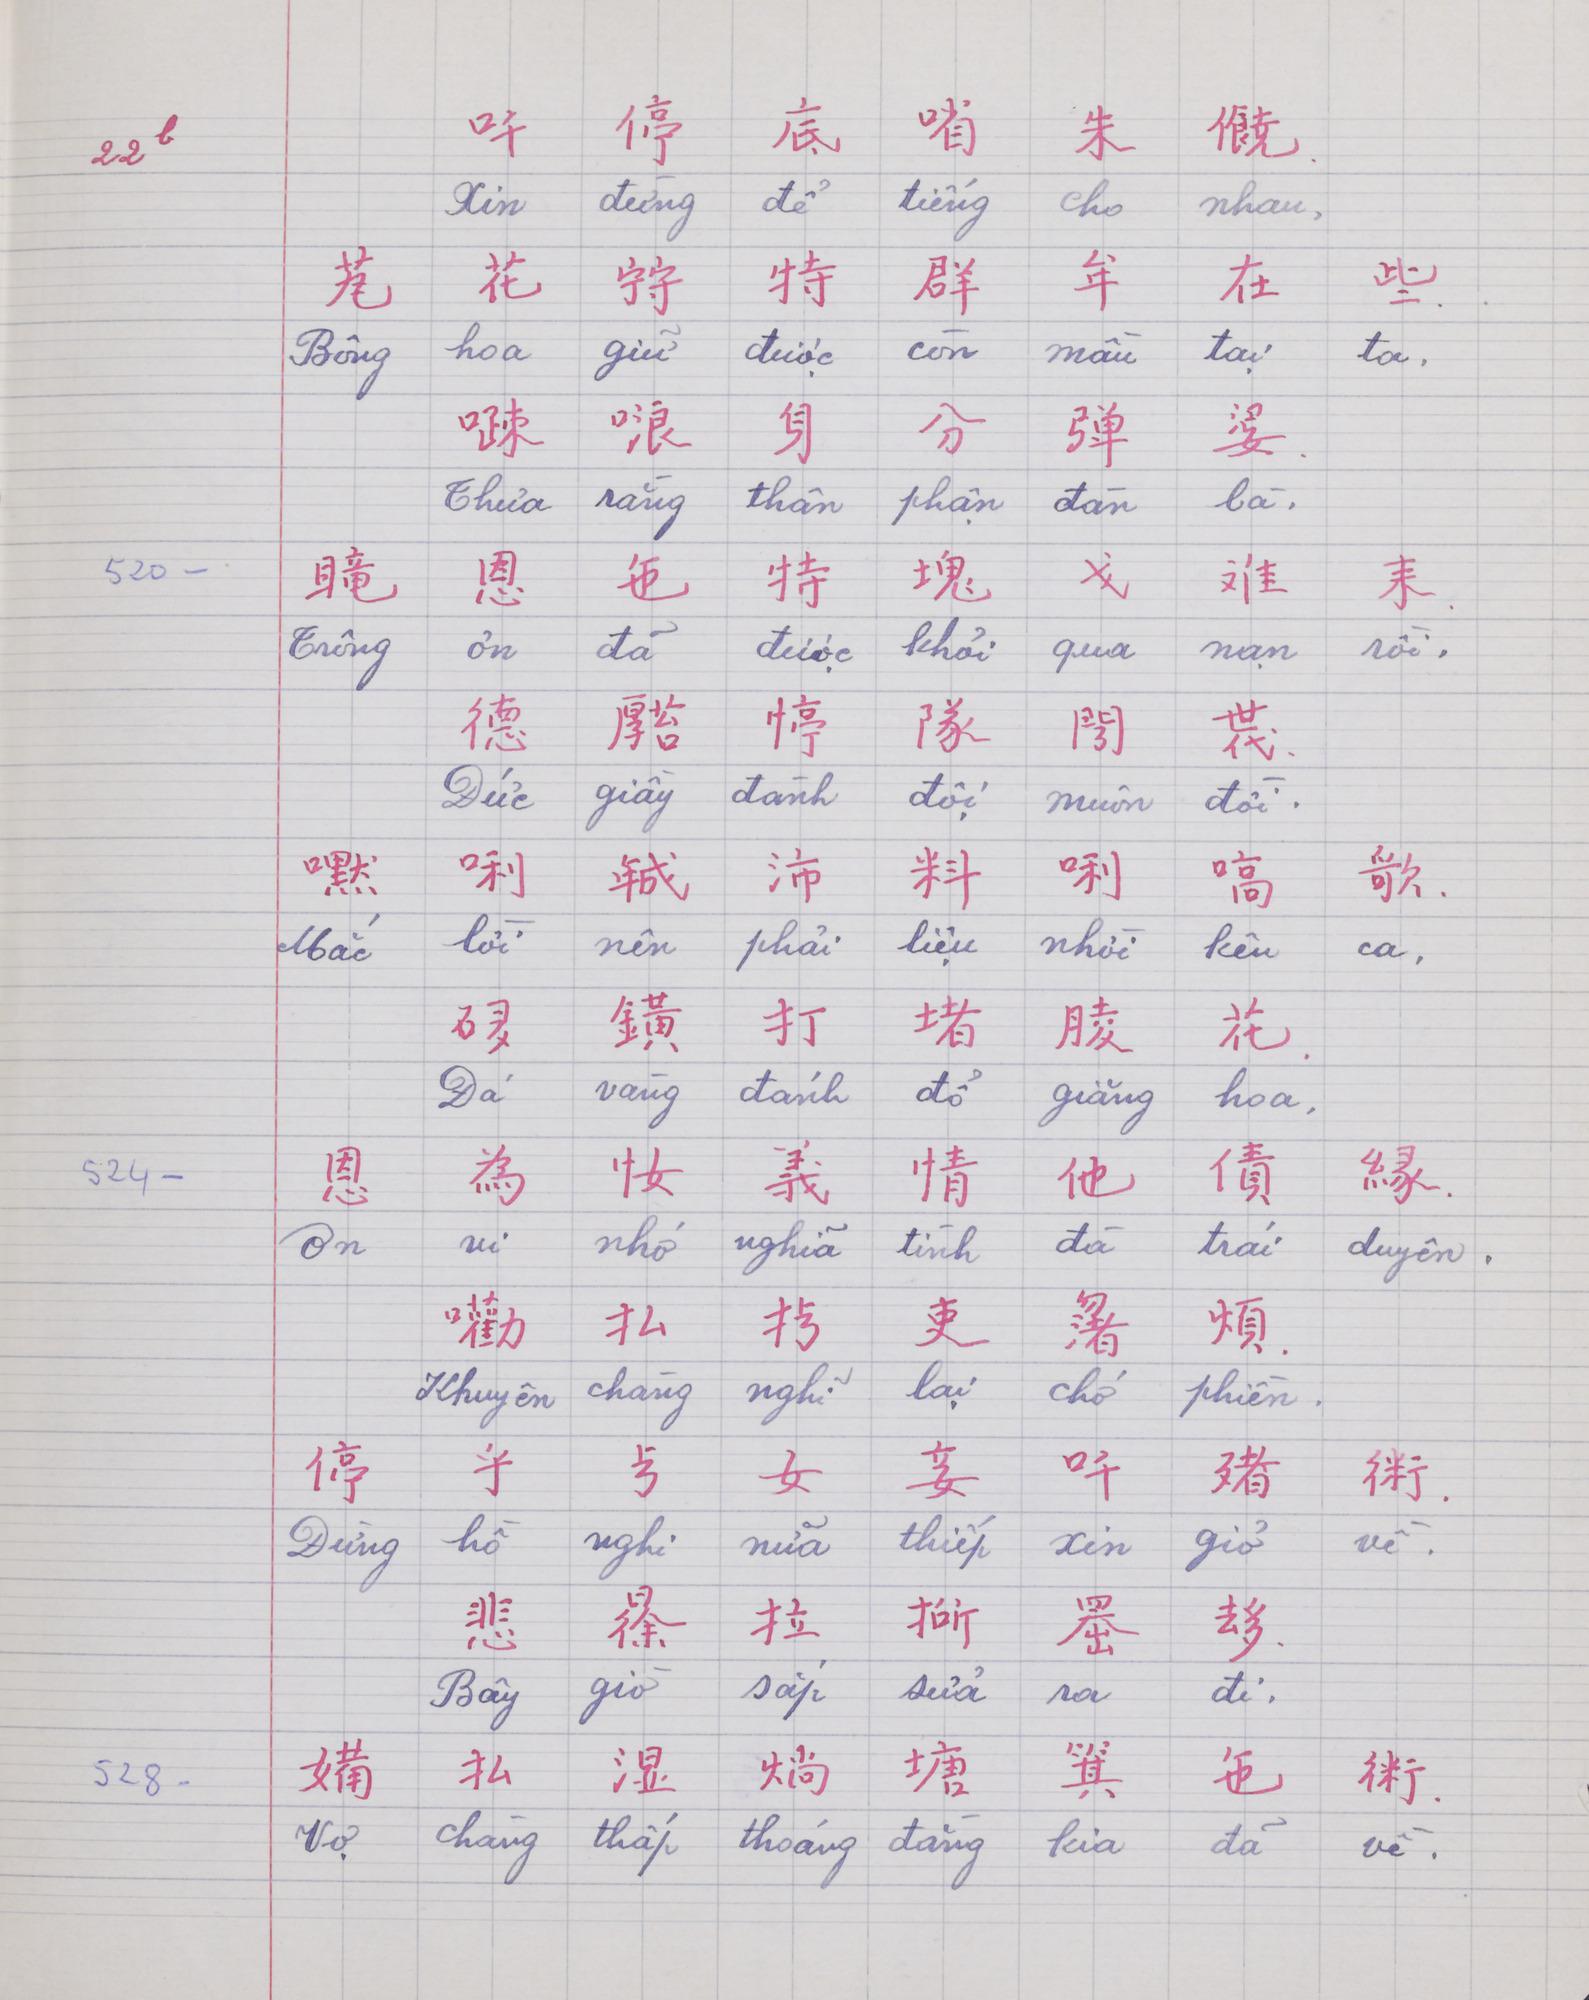 22b 吀 停 底 哨 朱 饒.
Xin đừng để tiếng cho nhau,
花 特 群 牟 在 些.
Bông hoa giữ được còn mầu tại ta.
𠹾 哴 身 分 弹 婆.
Thưa rằng thân phận đàn bà.
520 – 恩 㐌 特 塊 戈 难 耒.
Trông ơn đã được khỏi qua nạn rồi.
德 停 隊 閍 𠁀.
Đức giầy đành đội muôn đời.
嚜 唎 沛 料 唎 嗃 歌.
Mắc lời nên phải liệu nhời kêu ca,
鐄 打 堵 花.
Dá vàng đánh đổ giăng hoa,
524 – 恩 為 𢘾 義 情 他 債 縁.
Ơn vì nhớ nghĩa tình đà trái duyên.
払 吏 煩.
Khuyên chàng nghĩ lại chớ phiền.
停 乎 女 妾 吀 術.
Đừng hồ nghi nữa thiếp xin giở về.
悲 𣇞 拉 𠚢 𠫾.
Bây giờ sắp sửa ra đi.
528 – 払 湿 塘 箕 㐌 術.
Vợ chàng thấp thoáng đàng kia đã về.